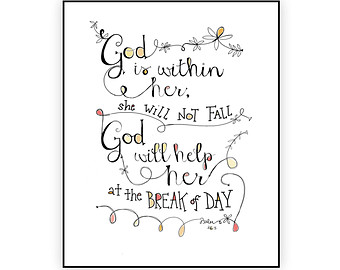 God
is within
her,
she will NOT FALL
God
will help
her
at the BREAK of DAY
Psalm
46:5